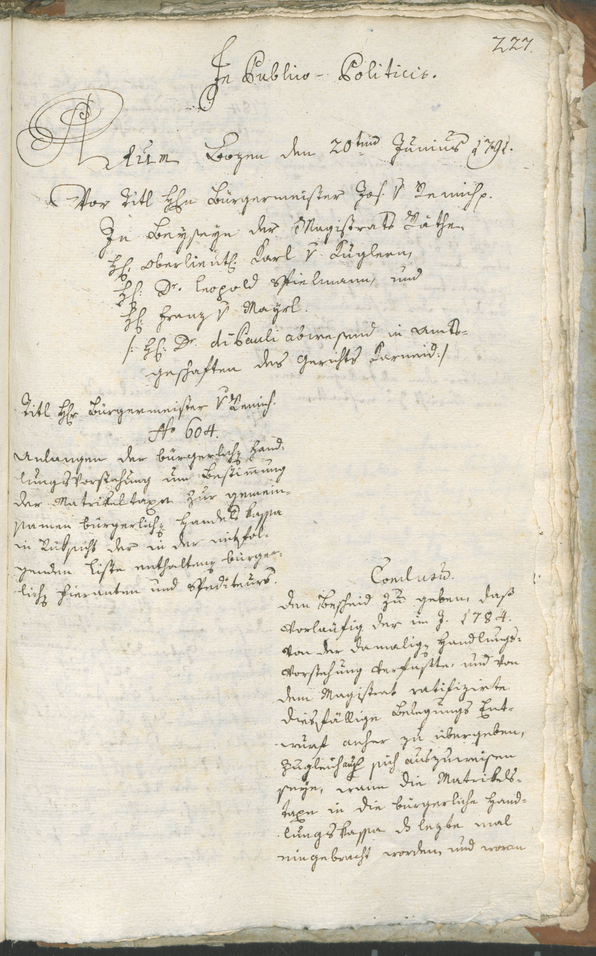 227.
In Publico-Politicis.
Actum Bozen den 20tn Junius 1791.
Vor Titl Hrn Bürgermeister Jos. v Remich p.
In Beyseyn der Magistrats Räthe
H: Oberlieut: Karl v Kuglern,
H: Dr. Leopold Spielmann, und
H: Franz v Mayrl.
/: H: Dr. di Pauli abwesend in Amts-
geschäften des Gerichts Karneid :/
Titl Hr Bürgermeister v Remich.
No 604.
Anlangen der bürgerlich Hand
lungsvorstehung um Bestimmung
der Matrikeltaxe zur gemein-
samen bürgerlich Handels Kassa
in Rücksicht der in der mitfol-
genden Liste enthalten bürger-
lich Fieranten und Spediteurs.
Conclusum.
Den Bescheid zu geben, daß
vorläufig der im J. 1784.
von der damalig Handlungs-
vorstehung verfaßte und von
dem Magistrat ratifizirte
diesfällige Belegungs Ent-
wurf anher zu übergeben,
zugleich auch sich auszuweisen
seye, wann die Matrikels-
taxe in die bürgerliche Hand-
lungs Kassa das letzte mal
eingebracht worden, und woran